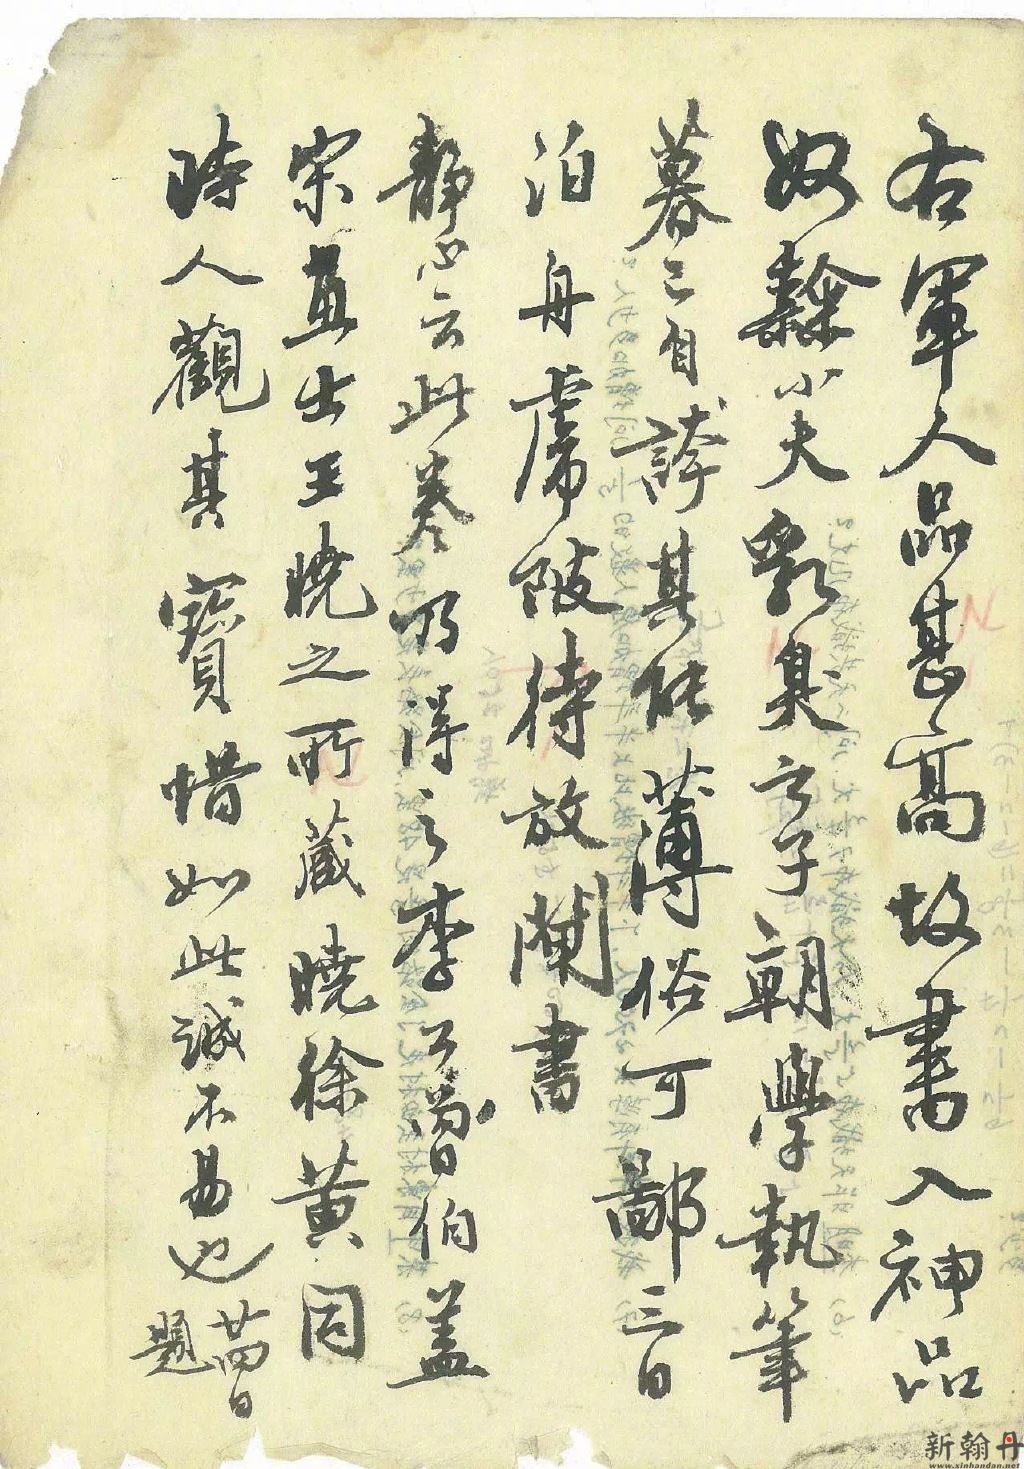 右軍人品甚高故書入神品
奴隸小夫乳臭之子朝學執筆
暮已自誇其能薄俗可鄙三日
泊舟虎陂待放閘書
靜心云此卷乃得之李公曾伯蓋
宋直出王曉之所藏曉徐黃同
時人觀其寶惜如此誠不易也廿四日
題
新翰丹
www.xinhandan.net